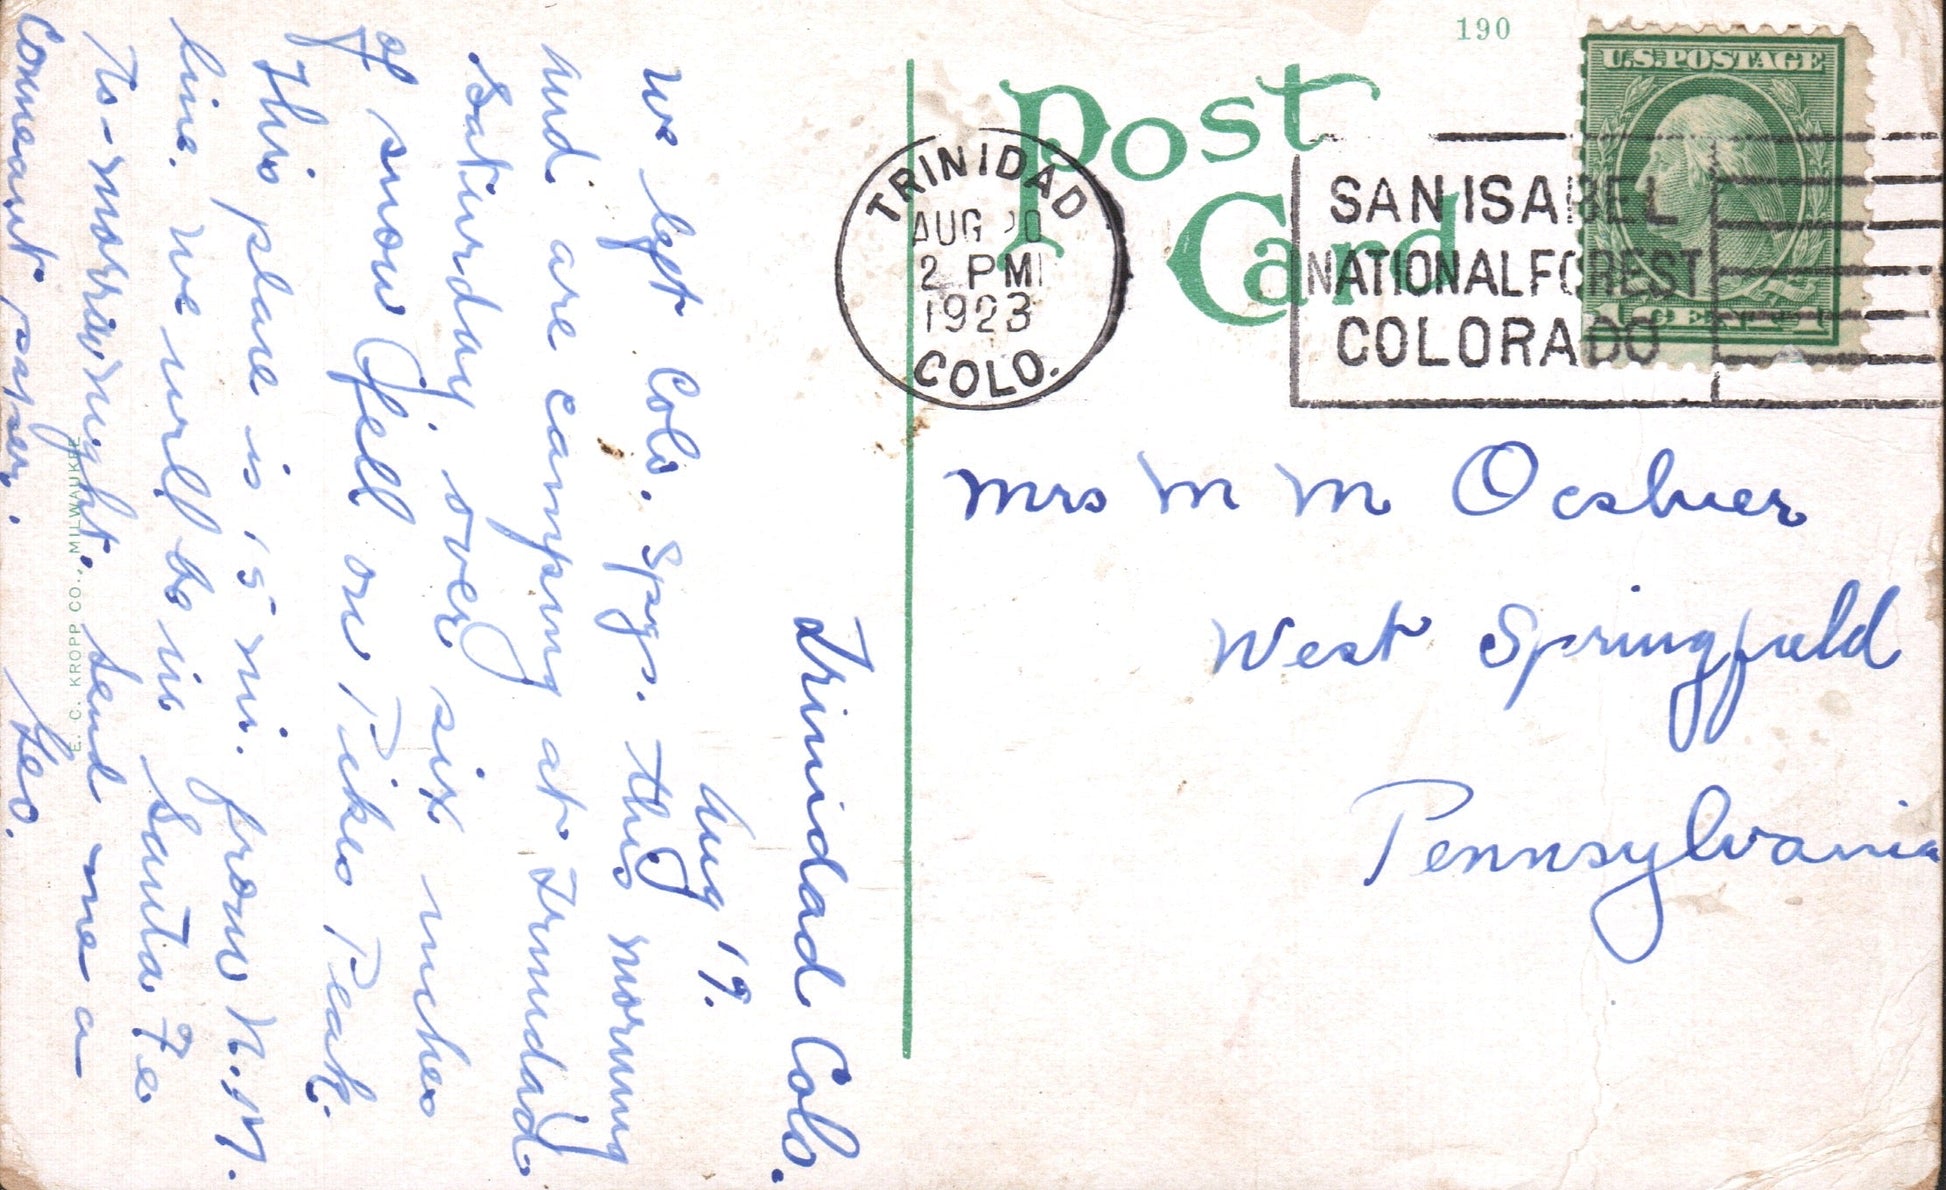 Trinidad Colo.
Aug 19.
We left Colo. Spgs. this morning
and are camping at Trinidad.
Saturday over six inches
of snow fell on Pikes Peak.
This place is 15 mi. from N.M.
line. We will be in Santa Fe
to-morrow night. Send me a
Conneaut paper. Geo.
E. C. KROPP CO., MILWAUKEE
190
Post
Card
U.S. POSTAGE
1 CENT 1
TRINIDAD
AUG 20
2 PM
1923
COLO.
SAN ISABEL
NATIONAL FOREST
COLORADO
Mrs M M
West Springfield
Pennsylvania